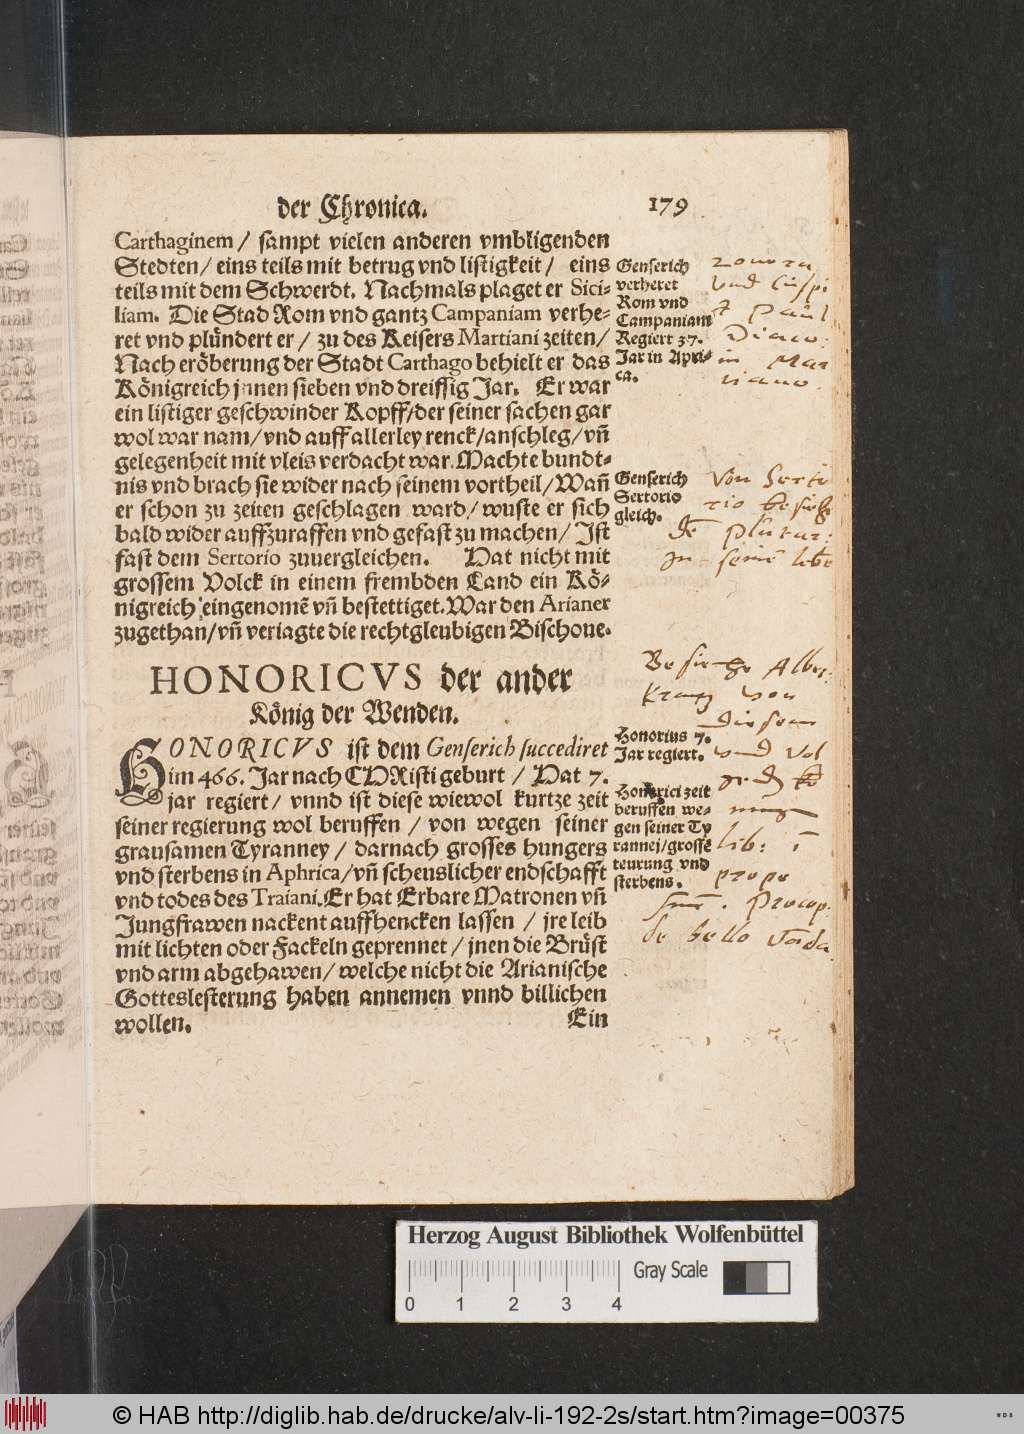 der Chronica. 179
Carthaginem / sampt vielen anderen vmbligenden
Stedten / eins teils mit betrug vnd listigkeit / eins
teils mit dem Schwerdt. Nachmals plaget er Sici-
liam. Die Stad Rom vnd gantz Campaniam verhe-
ret vnd plündert er / zu des Keisers Martiani zeiten /
Nach eröberung der Stadt Carthago behielt er das
Königreich jnnen sieben vnd dreissig Jar. Er war
ein listiger geschwinder Kopff / der seiner sachen gar
wol war nam / vnd auff allerley renck / anschleg / vñ
gelegenheit mit vleis verdacht war. Machte bundt-
nis vnd brach sie wider nach seinem vortheil / Wañ
er schon zu zeiten geschlagen ward / wuste er sich
bald wider auffzuraffen vnd gefast zu machen / Ist
fast dem Sertorio zuuergleichen. Hat nicht mit
grossem Volck in einem frembden Land ein Kö-
nigreich eingenomẽ vñ bestettiget. War den Arianer
zugethan / vñ veriagte die rechtgleubigen Bischoue.
Genserich
verheret
Rom vnd
Campaniam
Regiert 37.
Jar in Apri-
ca.
vnd Cuspi
Paul
Diaco:
in Mar
tiano.
Genserich
Sertorio
gleich.
Von Serto
rio besihe
dẽ plutar:
In seinẽ lebẽ
HONORICVS der ander
König der Wenden.
HONORICVS ist dem Genserich succediret
im 466. Jar nach CHRisti geburt / Hat 7.
jar regiert / vnnd ist diese wiewol kurtze zeit
seiner regierung wol beruffen / von wegen seiner
grausamen Tyranney / darnach grosses hungers
vnd sterbens in Aphrica / vñ scheuslicher endschafft
vnd todes des Traiani. Er hat Erbare Matronen vñ
Jungfrawen nackent auffhencken lassen / jre leib
mit lichten oder Fackeln geprennet / jnen die Brüst
vnd arm abgehawen / welche nicht die Arianische
Gotteslesterung haben annemen vnnd billichen
wollen.
Ein
Honorius 7.
Jar regiert.
Honorici zeit
beruffen we-
gen seiner Ty
rannei / grosse
teurung vnd
sterbens.
Besiehe Alber:
Krantz von
diesem
vnd
lib: 1
prope
finẽ. Procop.
de bello Vanda
Herzog August Bibliothek Wolfenbüttel
Gray Scale
0 1 2 3 4
© HAB http://diglib.hab.de/drucke/alv-li-192-2s/start.htm?image=00375